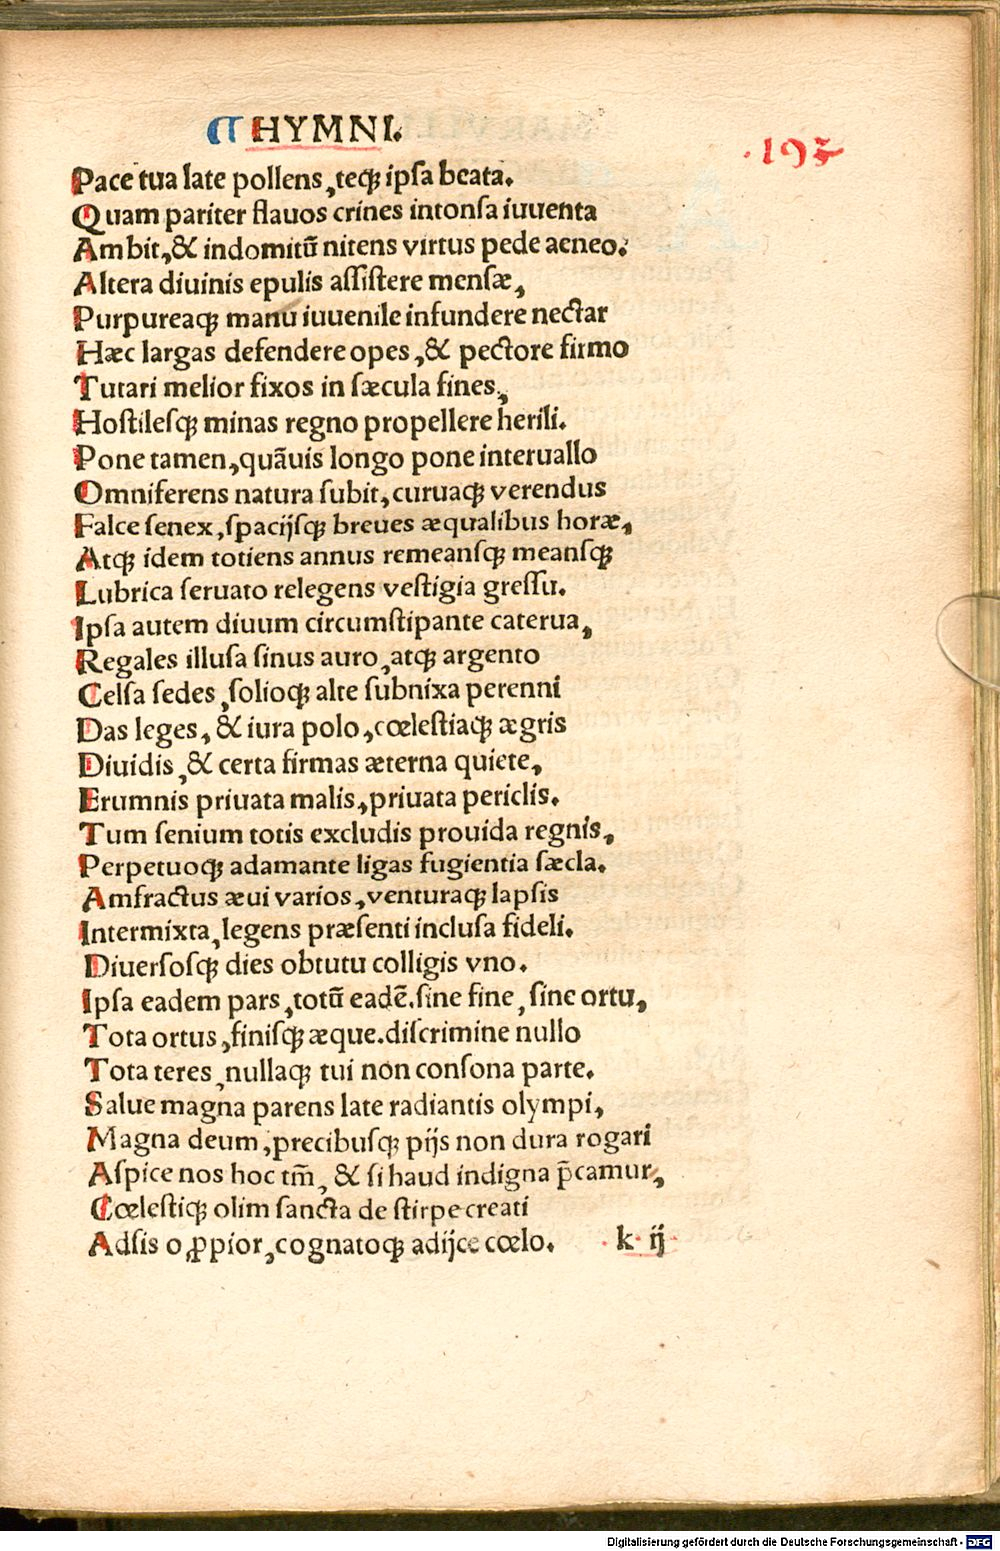 HYMNI.
.195
Pace tua late pollens, teqꝫ ipſa beata.
Quam pariter flauos crines intonſa iuuenta
Ambit, & indomitū nitens virtus pede aeneo.
Altera diuinis epulis aſſiſtere menſæ,
Purpureaqꝫ manu iuuenile infundere nectar
Hæc largas defendere opes, & pectore firmo
Tutari melior fixos in ſæcula fines,
Hoſtileſqꝫ minas regno propellere herili.
Pone tamen, quāuis longo pone interuallo
Omniferens natura ſubit, curuaqꝫ verendus
Falce ſenex, ſpacijſqꝫ breues æqualibus horæ,
Atqꝫ idem totiens annus remeanſqꝫ meanſqꝫ
Lubrica ſeruato relegens veſtigia greſſu.
Ipſa autem diuum circumſtipante caterua,
Regales illuſa ſinus auro, atqꝫ argento
Celſa ſedes, ſolioqꝫ alte ſubnixa perenni
Das leges, & iura polo, cœleſtiaqꝫ ægris
Diuidis, & certa firmas æterna quiete,
Erumnis priuata malis, priuata periclis.
Tum ſenium totis excludis prouida regnis,
Perpetuoqꝫ adamante ligas fugientia ſæcla.
Amfractus æui varios, venturaqꝫ lapſis
Intermixta, legens præſenti incluſa fideli.
Diuerſoſqꝫ dies obtutu colligis vno.
Ipſa eadem pars, totū eadē. ſine fine, ſine ortu,
Tota ortus, finiſqꝫ æque. diſcrimine nullo
Tota teres, nullaqꝫ tui non conſona parte.
Salue magna parens late radiantis olympi,
Magna deum, precibuſqꝫ pijs non dura rogari
Aſpice nos hoc tm̄, & ſi haud indigna p̄camur,
Cœleſtiqꝫ olim ſancta de ſtirpe creati
Adſis o ꝓpior, cognatoqꝫ adijce cœlo. k ij
Digitalisierung gefördert durch die Deutsche Forschungsgemeinschaft - DFG